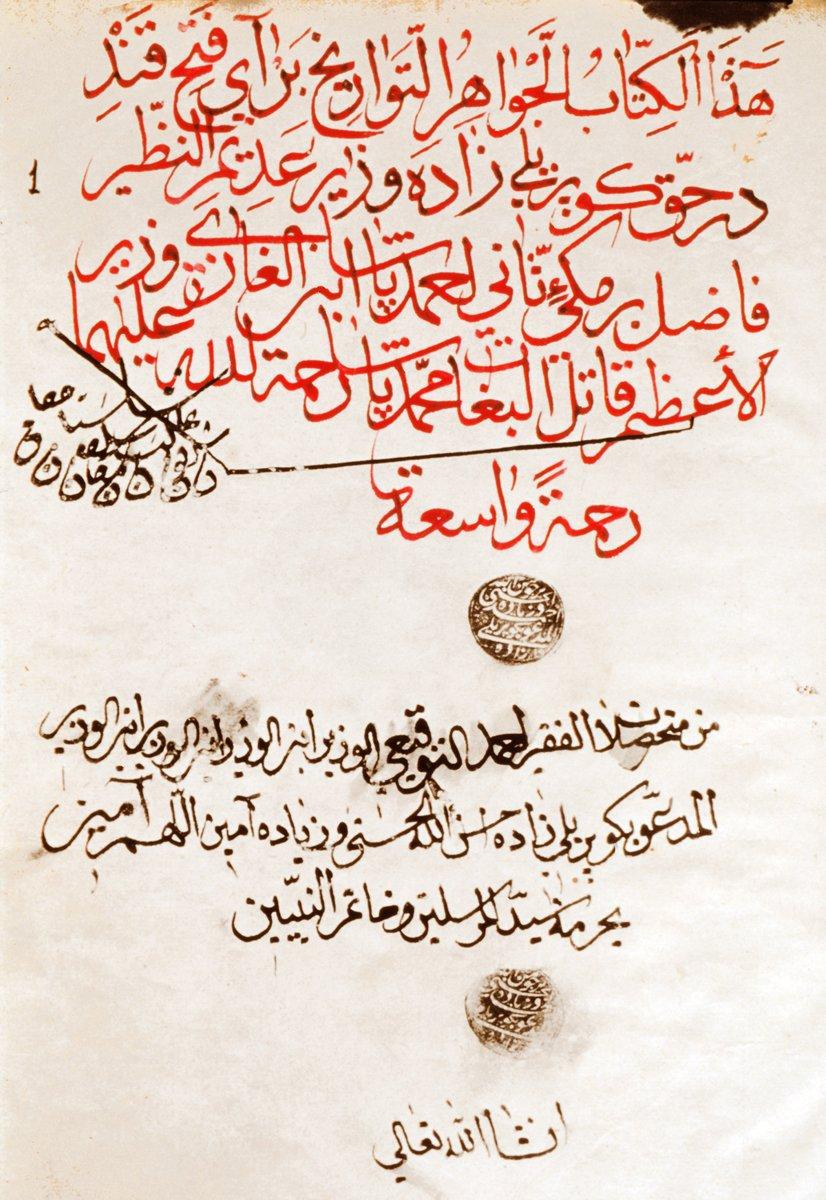 هَذَا الَكِتَابُ الَجَّوَاهِرُ الَتَّوَارِيخْ بَرَاَيِ فَتَحِ قَنَدْيِ
1
در حقّ كوپريلي زاده وزير عديم النظير
فاضل برمكئ ثاني احمد پاشا ابن الغازى وزير
الأعظم قاتل البغات محمّد پاشا رحمة الله عليهما
رحمةً واسعة
من متحصلات الفقير احمد التوقيعي الوزير ابن الوزير ابن الوزير ابن الوزير
المدعوّ بكوپريلي زاده حسن الله الحسنى وزياده آمين اللّهم آمين
بحرمة سيّد المرسلين وخاتم النبيّين
انشاالله تعالي